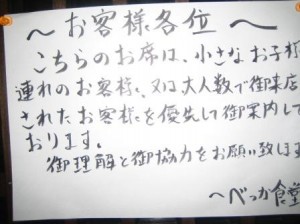 ～お客様各位～
こちらのお席は、小さなお子様
連れのお客様、又は大人数で御来店
されたお客様を優先して御案内して
おります。
御理解と御協力をお願い致しま
～べっか食堂